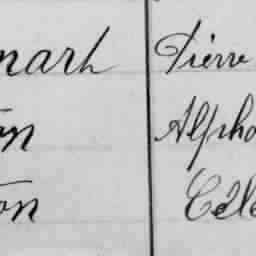 narh Pierre
on Alpho
on Céle